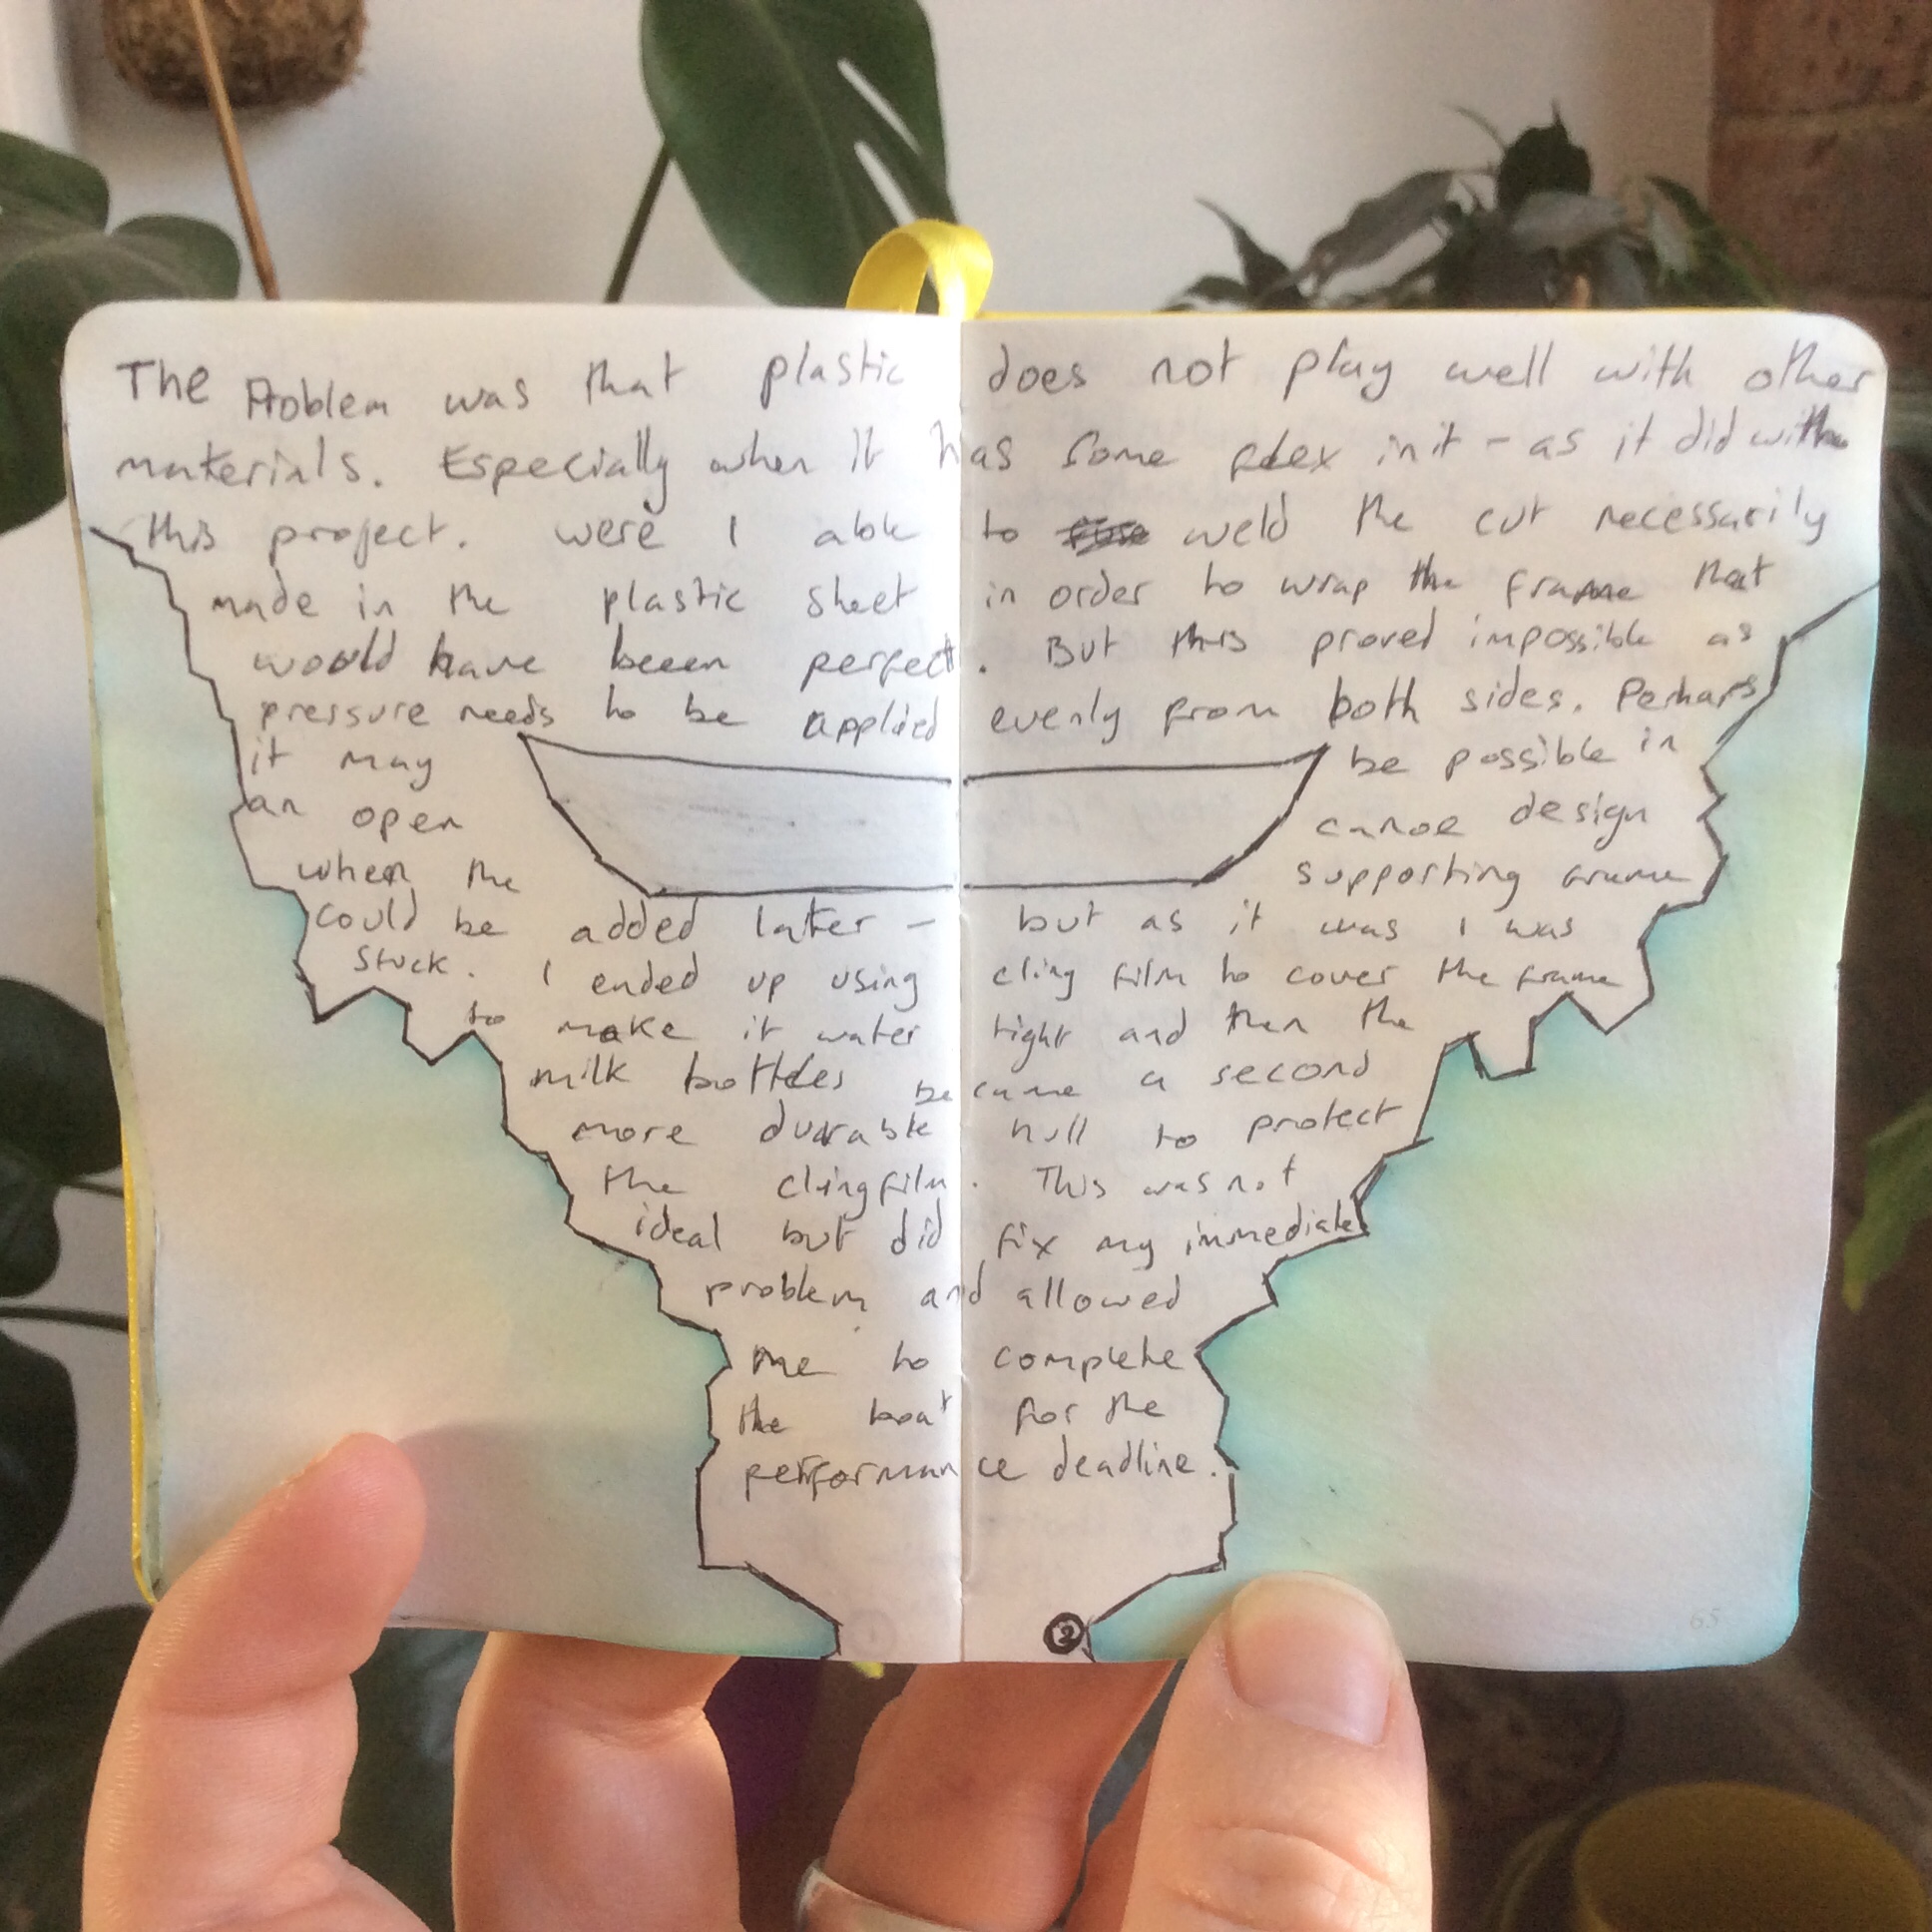 The Problem was that plastic does not play well with other
materials. Especially when it has some plex in it - as it did with
this project. were I able to weld the cut necessarily
made in the plastic sheet in order to wrap the frame that
would have beeen perfect. But this proved impossible as
pressure needs to be applied evenly from both sides. Perhaps
it may be possible in
an open canoe design
when the supporting
could be added later - but as it was I was
stuck. I ended up using cling film to cover the frame
to make it water tight and then the
milk bottles became a second
more durable hull to protect
the clingfilm. This was not
ideal but did fix my immediate
problem and allowed
me to complete
the boat for the
performance deadline.
2
65